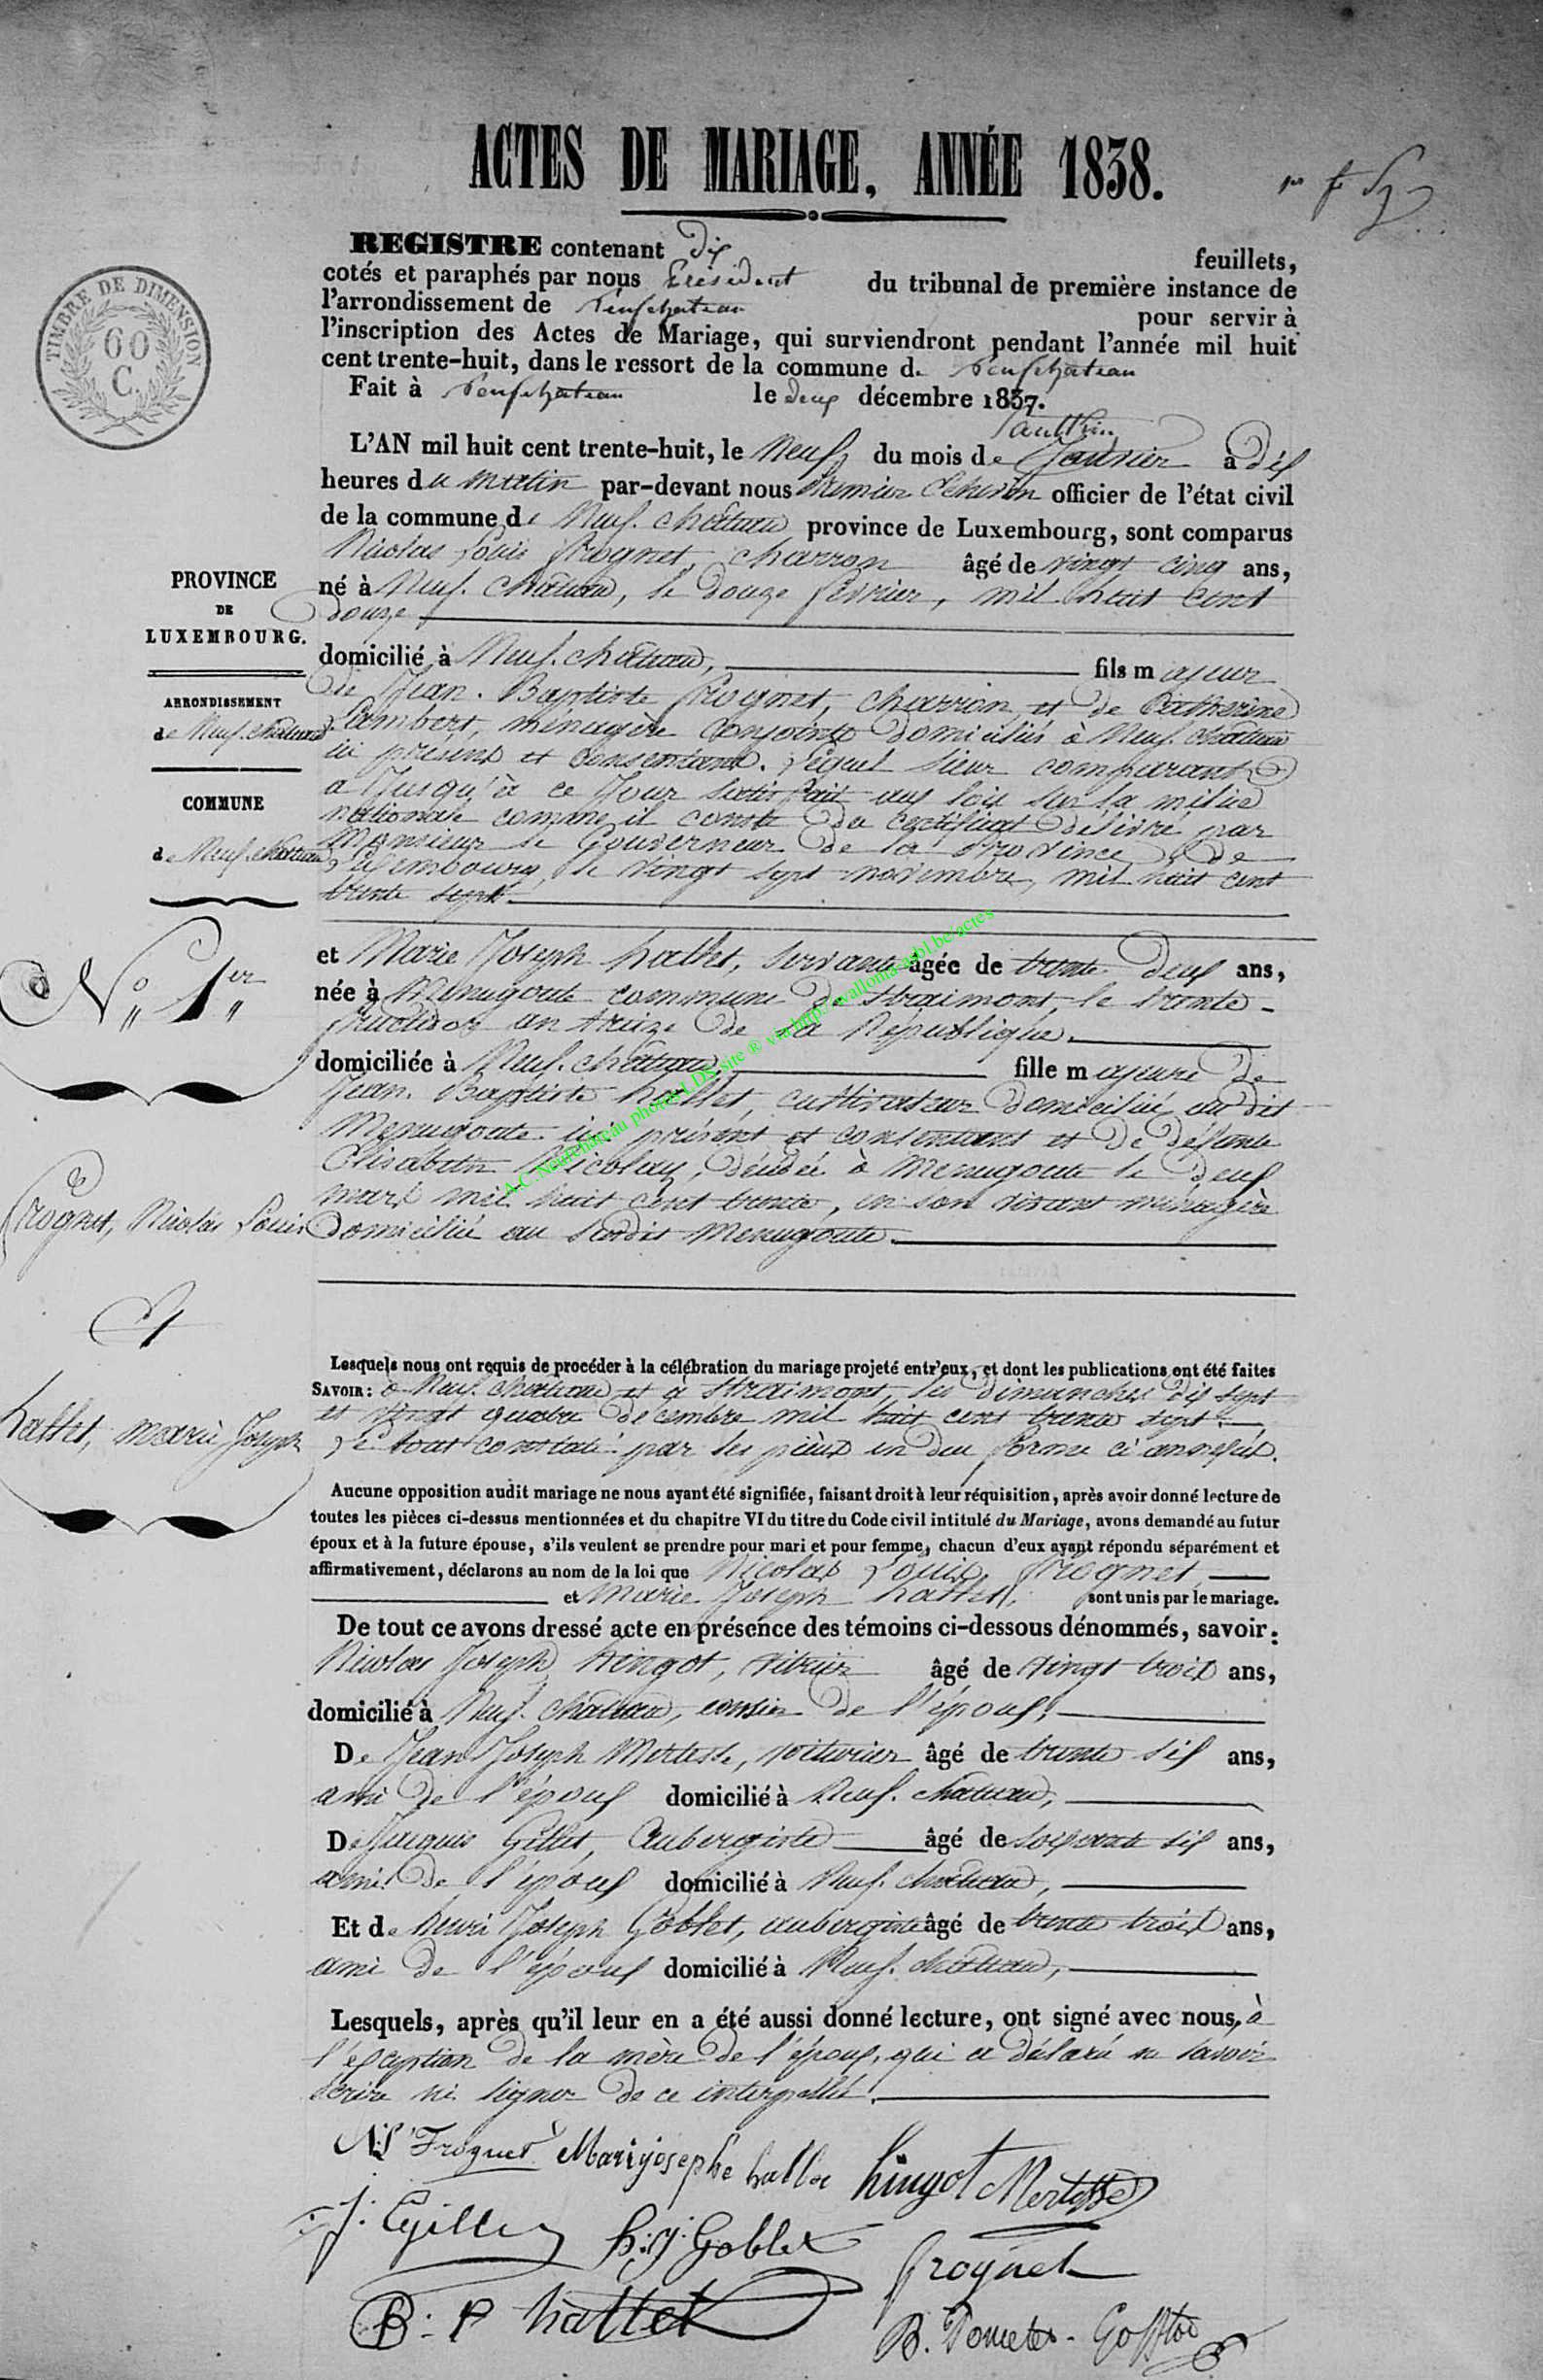 ACTES DE MARIAGE, ANNÉE 1838.
TIMBRE DE DIMENSION
60
C.
REGISTRE contenant Dix feuillets,
cotés et paraphés par nous Président du tribunal de première instance de
l'arrondissement de Neufchateau pour servir à
l'inscription des Actes de Mariage, qui surviendront pendant l'année mil huit
cent trente-huit, dans le ressort de la commune de Neufchateau
Fait à Neufchateau le deux décembre 1837.
L'AN mil huit cent trente-huit, le Neuf du mois de Janvier à dix
heures du matin par-devant nous Premier Echevin officier de l'état civil
de la commune de Neuf-château province de Luxembourg, sont comparus
Nicolas Louis Frognet, charron âgé de vingt cinq ans,
né à Neuf-château, le douze février, mil huit cent
douze
domicilié à Neuf-château, fils majeur
de Jean-Baptiste Frognet, charron, et de Catherine
Lambert, ménagère conjoints domiciliés à Neuf-château
ici présens et consentans. Lequel sieur comparant
a jusqu'à ce jour satisfait aux lois sur la milice
nationale comme il conste du certificat délivré par
Monsieur le Gouverneur de la province de
Luxembourg, le vingt sept novembre, mil huit cent
trente sept.
PROVINCE
DE
LUXEMBOURG.
ARRONDISSEMENT
de Neuf-château
COMMUNE
de Neuf-château
N° 1er
Frognet, Nicolas Louis
Et
hallet, marie Joseph
et Marie Joseph hallet, servante âgée de trente deux ans,
née à Menugoute commune de Straimont, le trente
fructidor an treize de la République.
domiciliée à Neuf-château, fille majeure de
Jean-Baptiste hallet, cultivateur domicilié au dit
Menugoute ici présent et consentant et de défunte
Elisabeth Nicolay, décédée à Menugoute le deux
mars mil huit cent trente, en son vivant ménagère
domiciliée au susdit Menugoute.
A.C. Neufchâteau photos LDS site ® via http://wallonia-asbl.be/actes
Lesquels nous ont requis de procéder à la célébration du mariage projeté entr'eux, et dont les publications ont été faites
SAVOIR: à Neuf-château et à Straimont, les dimanches dix sept
et vingt quatre décembre mil huit cent trente sept.
Le tout constaté par les pièces en due forme ci annexées.
Aucune opposition audit mariage ne nous ayant été signifiée, faisant droit à leur réquisition, après avoir donné lecture de
toutes les pièces ci-dessus mentionnées et du chapitre VI du titre du Code civil intitulé du Mariage, avons demandé au futur
époux et à la future épouse, s'ils veulent se prendre pour mari et pour femme, chacun d'eux ayant répondu séparément et
affirmativement, déclarons au nom de la loi que Nicolas Louis Frognet,
et Marie Joseph hallet, sont unis par le mariage.
De tout ce avons dressé acte en présence des témoins ci-dessous dénommés, savoir:
Nicolas Joseph hingot, vitrier âgé de vingt trois ans,
domicilié à Neuf-château, cousin de l'époux,
De Jean Joseph Mertesse, voiturier âgé de trente six ans,
ami de l'époux domicilié à Neuf-château,
De Jacques Gillet, Aubergiste âgé de soixante six ans,
ami de l'époux domicilié à Neuf-château,
Et de henri Joseph Goblet, aubergiste âgé de trente trois ans,
ami de l'époux domicilié à Neuf-château,
Lesquels, après qu'il leur en a été aussi donné lecture, ont signé avec nous, à
l'exception de la mère de l'époux, qui a déclaré ne savoir
écrire ni signer de ce interpellée.
N: L Frognet Marijosephe hallet hingot Mertesse
J: Gillet h: j: Goblet Frognet
B: hallet